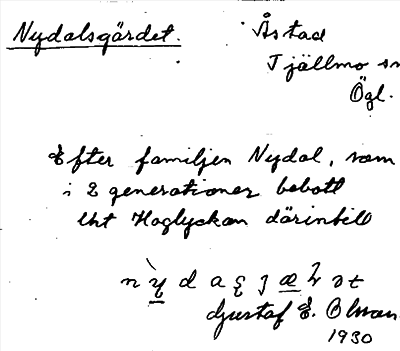 Nydalsgärdet.
Åstad
Tjällmo sn
Ögl.
Efter familjen Nydal, som
i 2 generationer bebott
Uht Hoglyckan därintill
Gustaf E. Olsson
1930